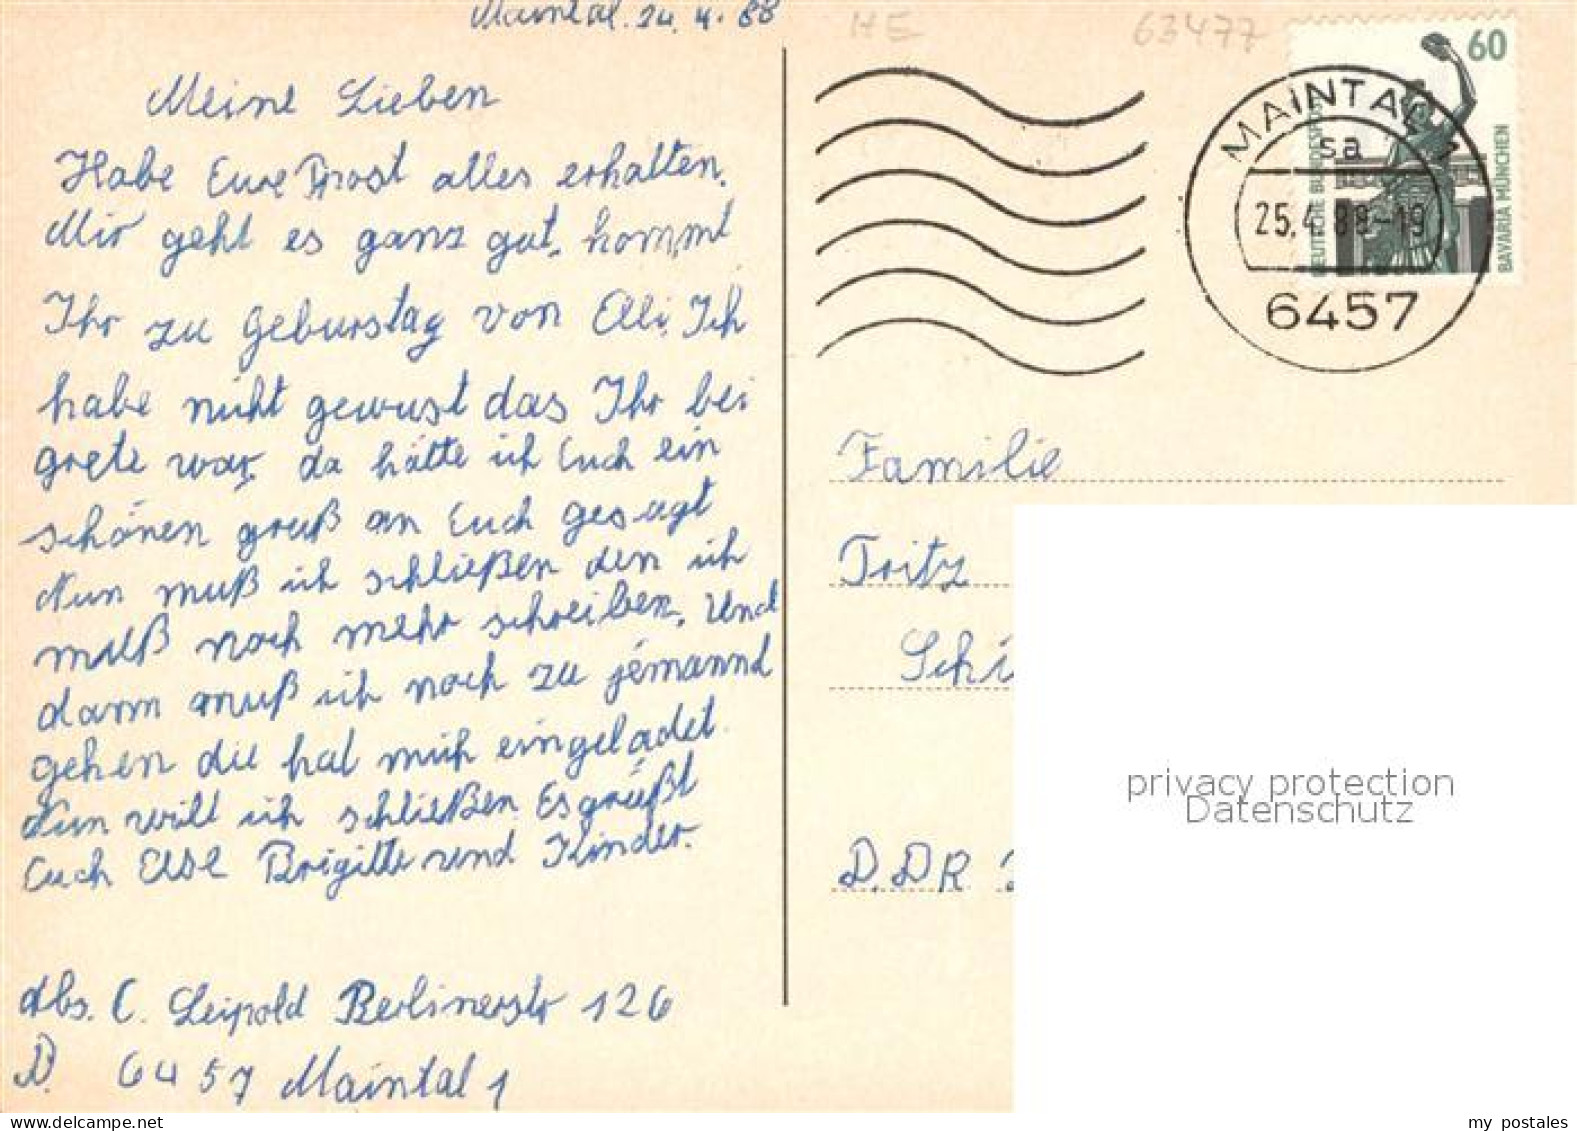 Maintal. 24. 4. 88
Meine Lieben
Habe Eure Prost alles erhalten.
Mir geht es ganz gut, kommt
Ihr zu Geburstag von Elli. Ich
habe nicht gewust das Ihr bei
grete war. da hätte ich Euch ein
schönen gruß an Euch gesagt
Nun muß ich schließen den ich
muß noch mehr schreiben. Und
dann muß ich noch zu jemannd
gehen die hat mich eingeladet.
Nun will ich schließen. Es grüßt
Euch Else Brigitte und Kinder.
Abs. C. Leipold Berlinerstr 126
D. 6457 Maintal 1
HE 63477
60
DEUTSCHE BUNDESPOST
BAVARIA MÜNCHEN
MAINTAL 1
sa
25.4.88-19
6457
Familie
Fritz
Schi
DDR
privacy protection
Datenschutz
my postales